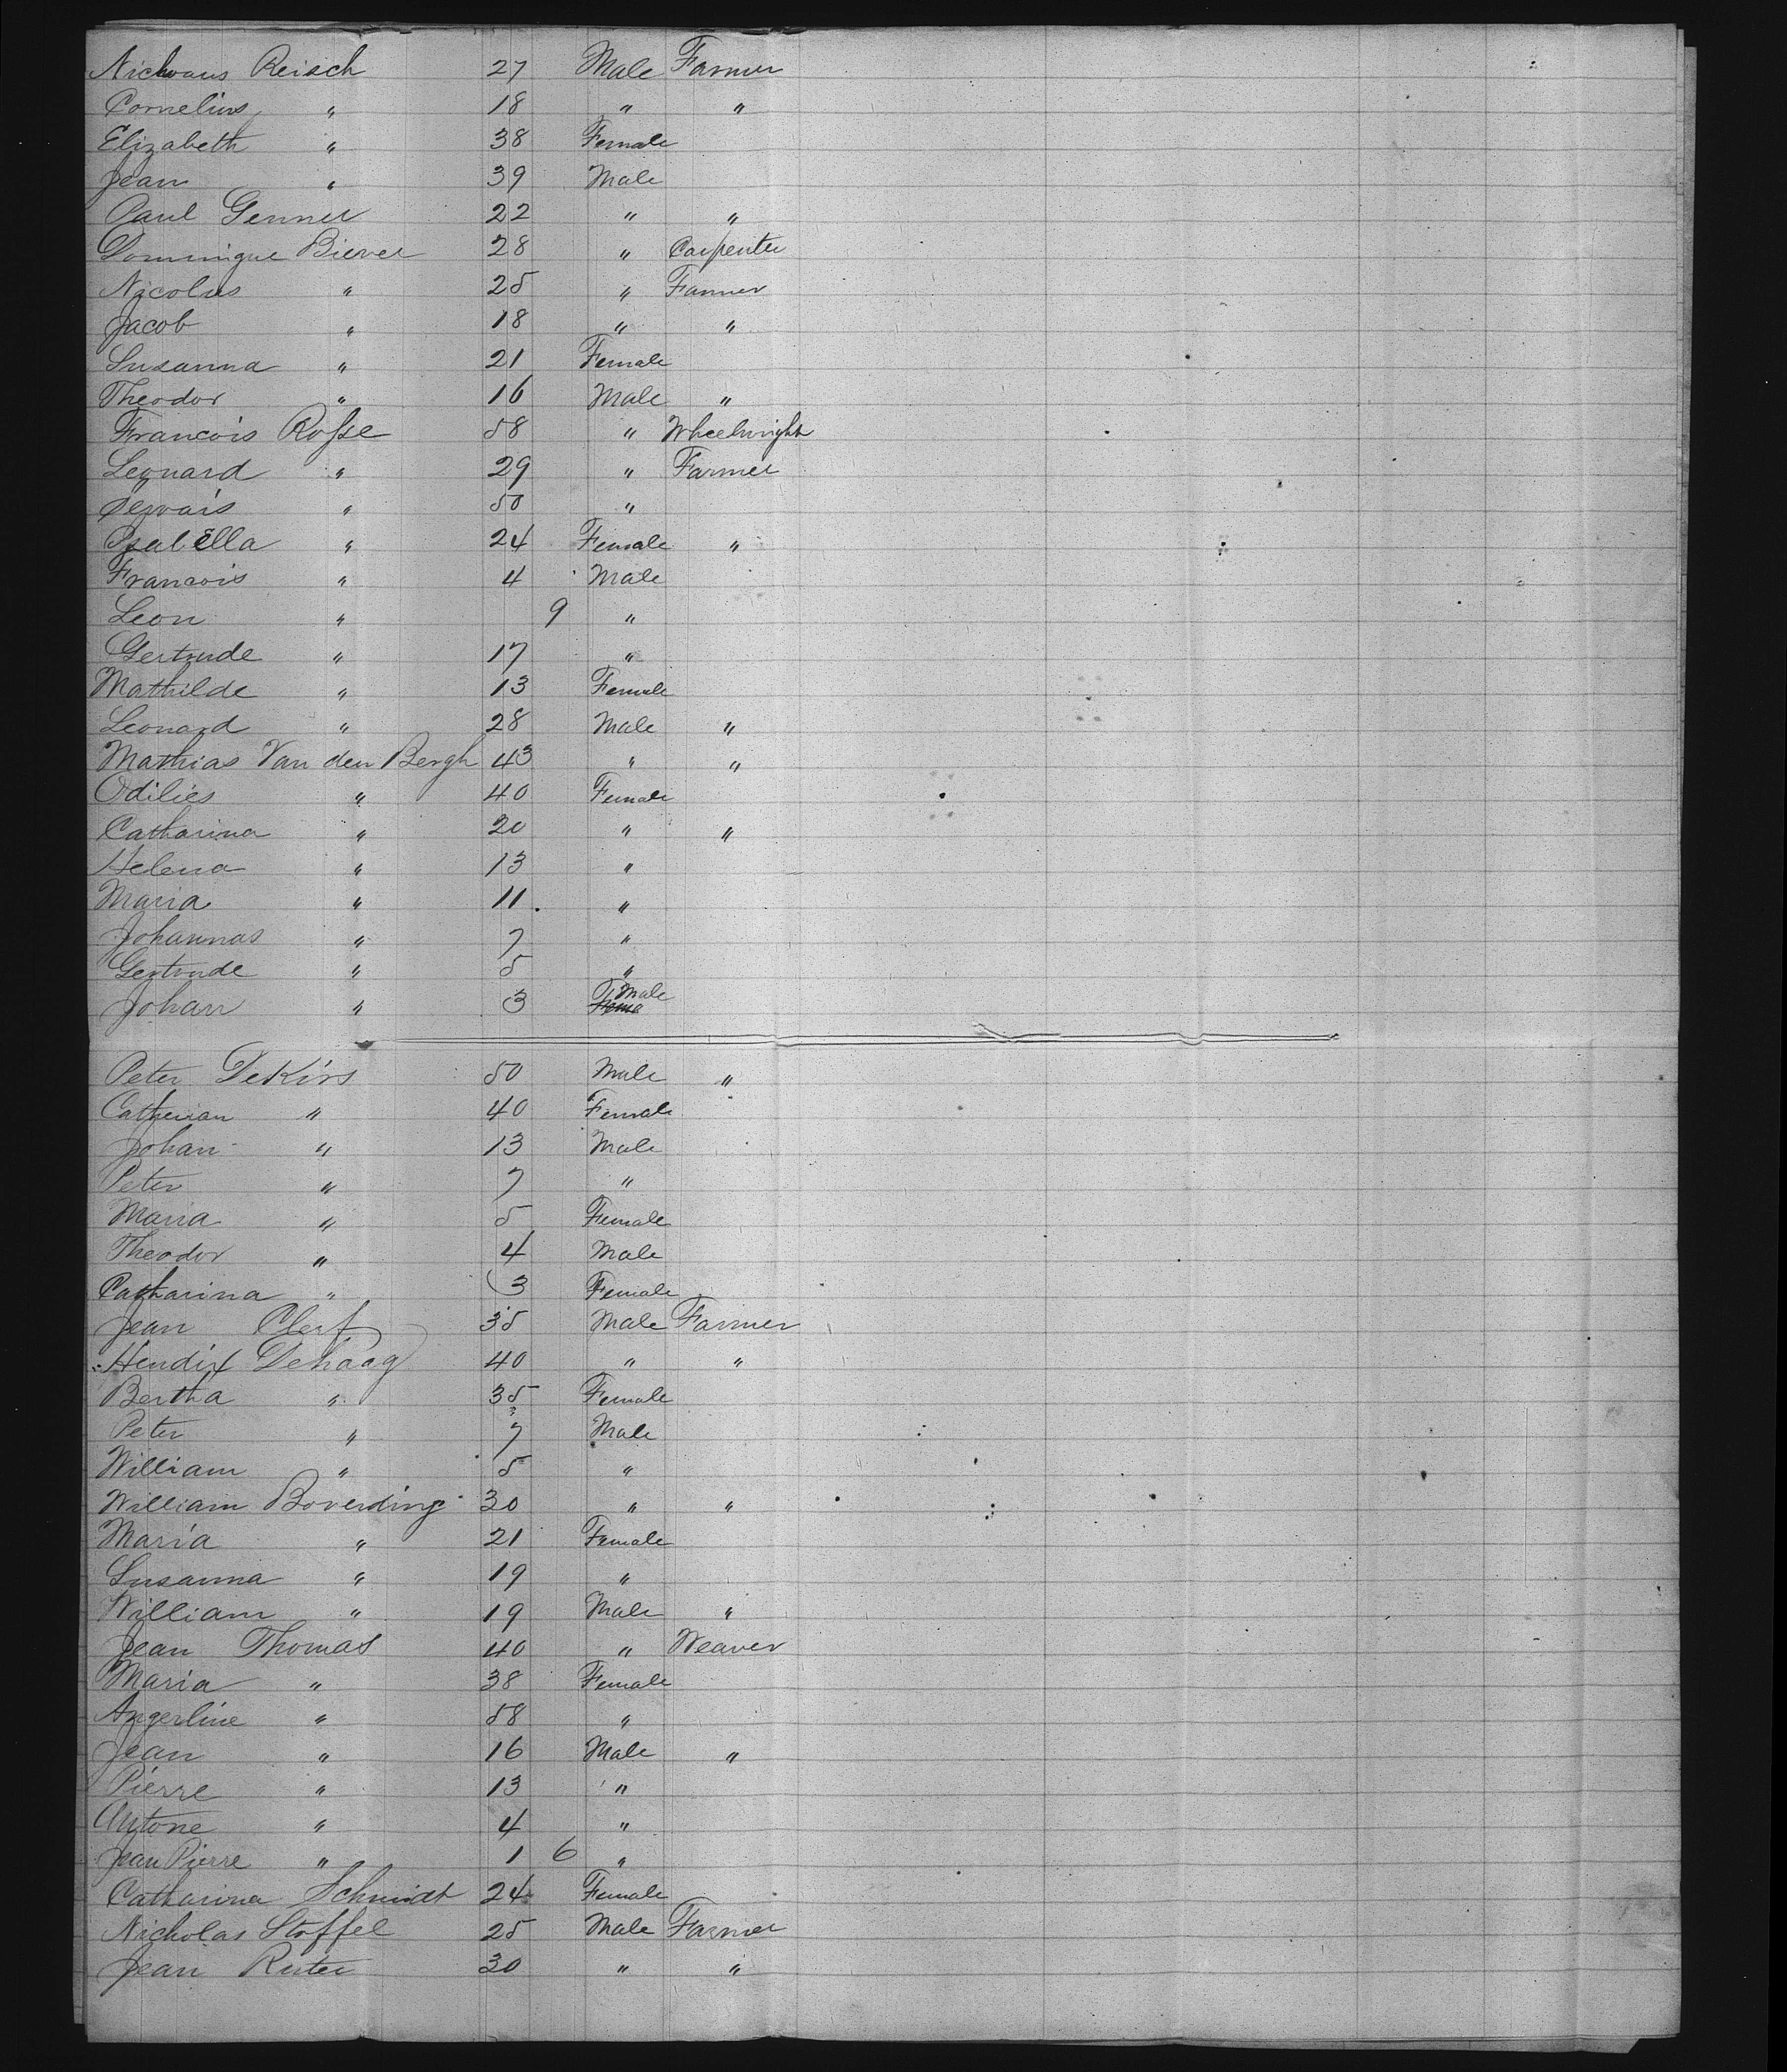 Nichvaus Reisch 27 Male Farmer
Cornelius " 18 " "
Elizabeth " 38 Female
Jean " 39 Male
Paul Genner 22 " "
Dominique Biever 28 " Carpenter
Nicolus " 25 " Farmer
Jacob " 18 " "
Susanna " 21 Female
Theodor " 16 Male "
Francois Rosse 58 " Wheelwright
Leonard " 29 " Farmer
Servais " 50 "
Isabella " 24 Female "
Francois " 4 Male
Leon " 9 "
Gertrude " 17 "
Mathilde " 13 Female
Leonard " 28 Male "
Mathias Van den Bergh 43 " "
Odilies " 40 Female
Catharina " 20 " "
Helena " 13 "
Maria " 11 "
Johannas " 7 "
Gertrude " 5 "
Johan " 3 Male
Peter DeKirs 50 Male "
Catherian " 40 Female
Johan " 13 Male
Peter " 7 "
Maria " 5 Female
Theodor " 4 Male
Catharina " 3 Female
Jean Clerf 35 Male Farmer
Hendix Dehaag 40 " "
Bertha " 35 Female
Peter " 7 Male
William " 5 "
William Boverding 30 " "
Maria " 21 Female
Susanna " 19 "
William " 19 Male "
Jean Thomas 40 " Weaver
Maria " 38 Female
Angerline " 58 "
Jean " 16 Male "
Pierre " 13 "
Antone " 4 "
Jean Pierre " 1 6 "
Catharina Schmidt 24 Female
Nicholas Stoffel 25 Male Farmer
Jean Ruter 30 " "